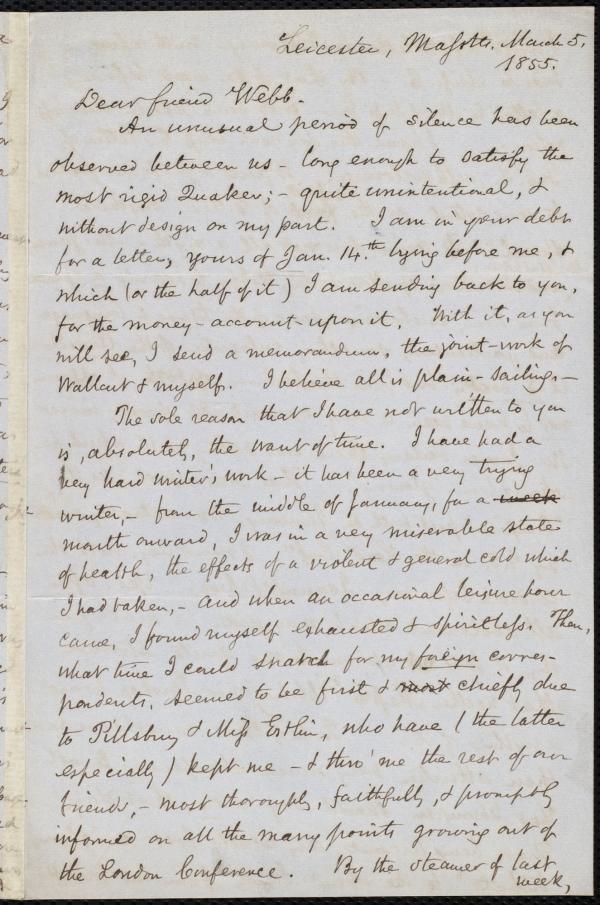 Leicester, Massts. March 5,
1855.
Dear friend Webb.
An unusual period of silence has been
observed between us - long enough to satisfy the
most rigid Quaker; - quite unintentional, &
without design on my part. I am in your debt
for a letter, yours of Jan. 14.th lying before me, &
which (or the half of it) I am sending back to you,
for the money-account upon it. With it, as you
will see, I send a memorandum, the joint-work of
Wallcut & myself. I believe all is plain-sailing. -
The sole reason that I have not written to you
is, absolutely, the want of time. I have had a
very hard winter's work - it has been a very trying
winter, - from the middle of January, for a week
month onward, I was in a very miserable state
of health, the effects of a violent & general cold which
I had taken, - and when an occasional leisure hour
came, I found myself exhausted & spiritless. Then,
what time I could snatch for my foreign corres-
pondents, seemed to be first & most chiefly due
to Pillsbury & Miss Estlin, who have (the latter
especially) kept me - & thro' me the rest of our
friends, - most thoroughly, faithfully, & promptly
informed on all the many points growing out of
the London Conference. By the steamer of last
week,